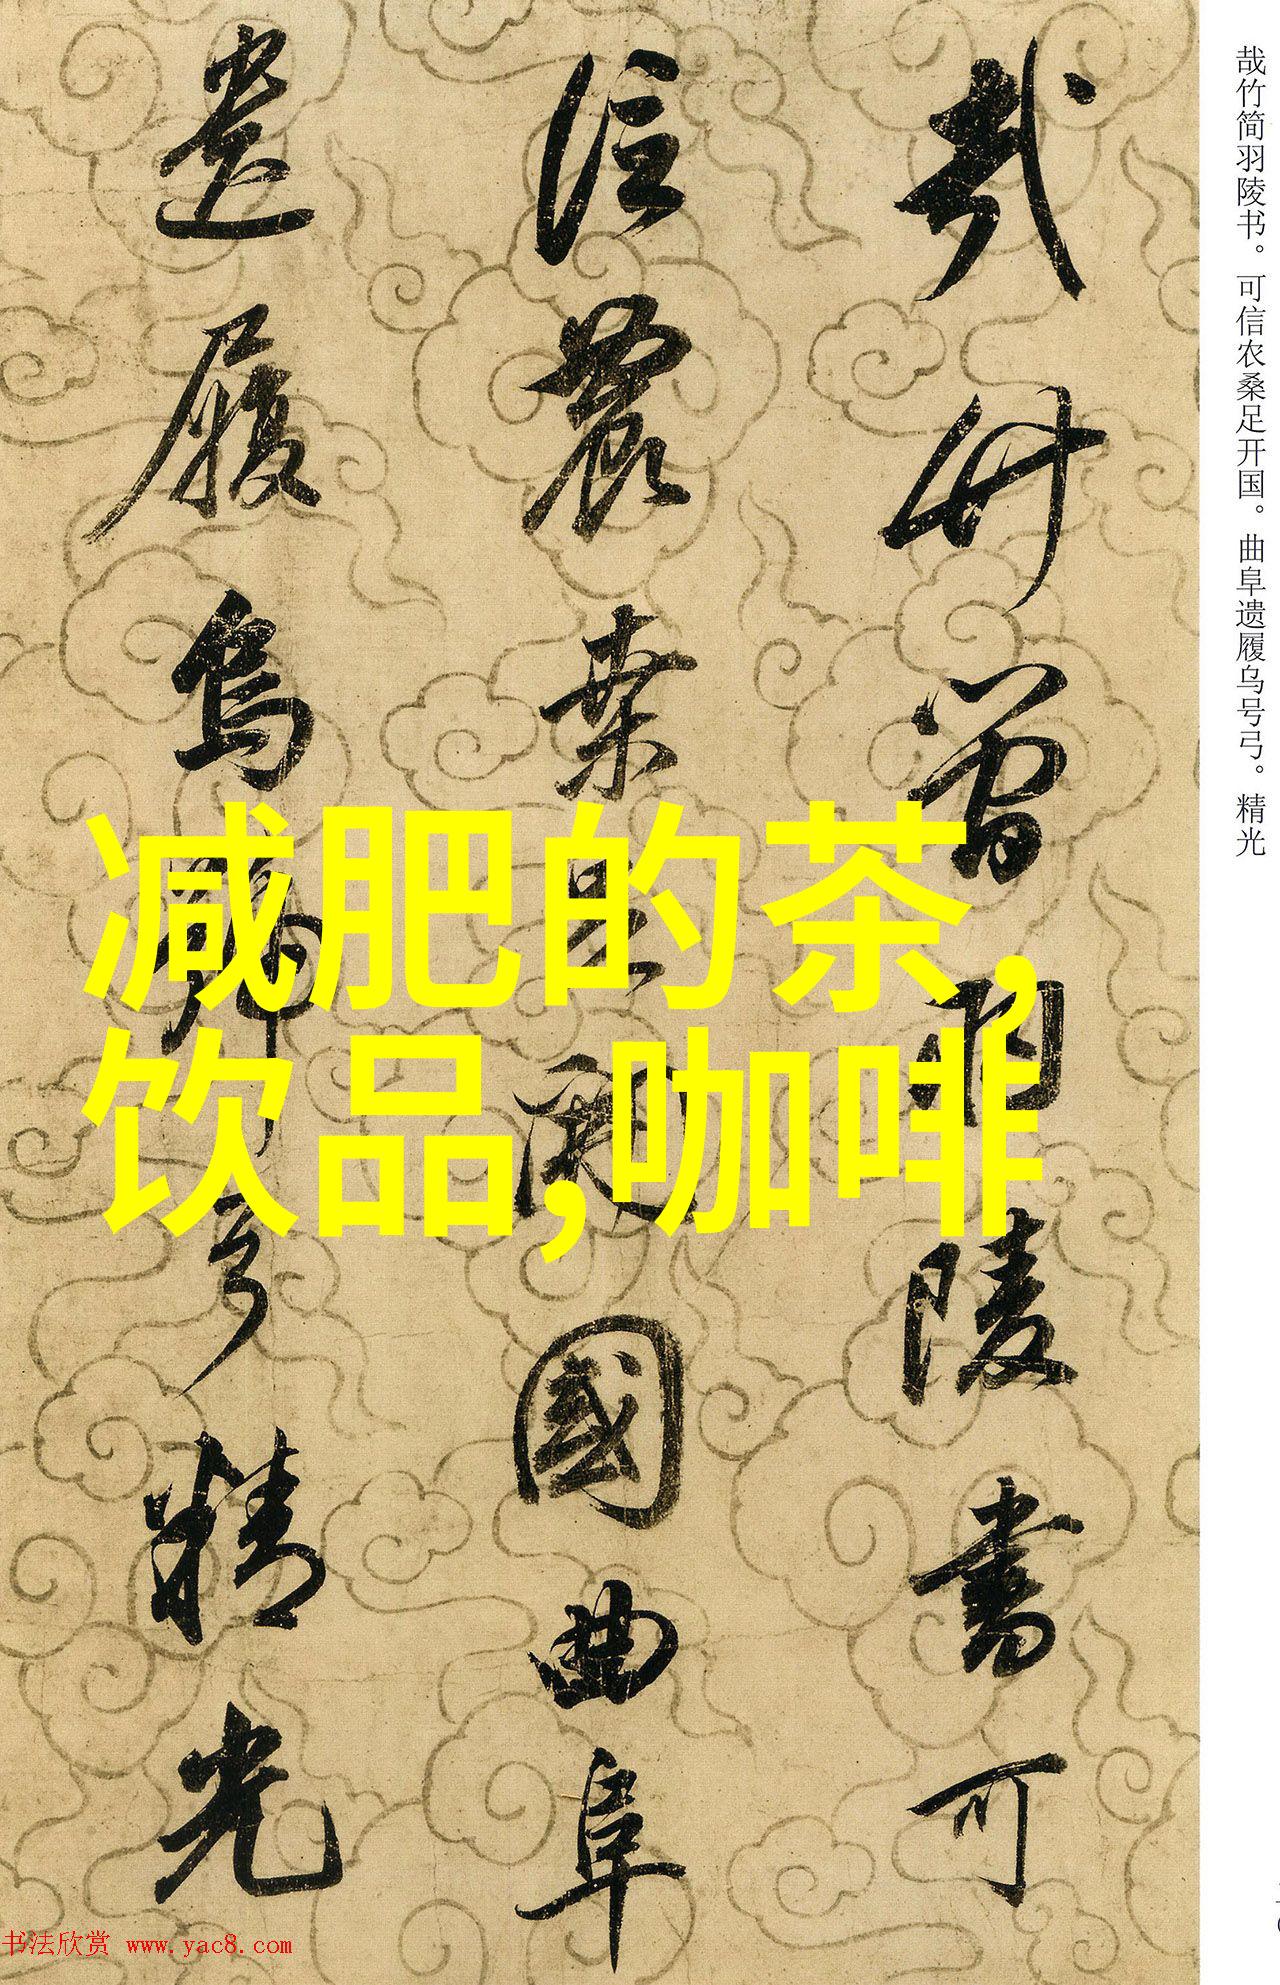 哉竹简羽陵书。可信农桑足开国。曲阜遗履乌号弓。精光
哉竹簡羽陵書可
信農桑足開國曲阜
遺履烏號弓精光
减肥的茶,
饮品,咖啡
书法欣赏 www.yac8.com